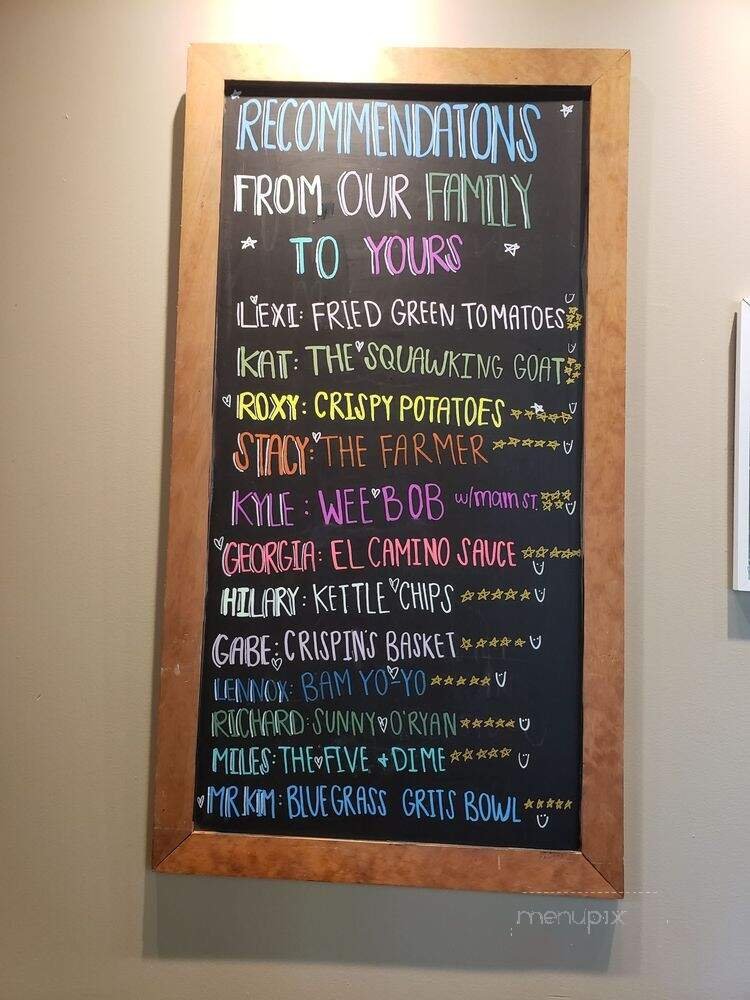 RECOMMENDATONS
FROM OUR FAMILY
TO YOURS
LEXI: FRIED GREEN TOMATOES
KAT: THE SQUAWKING GOAT
ROXY: CRISPY POTATOES
STACY: THE FARMER
KYLE: WEE BOB w/main ST.
GEORGIA: EL CAMINO SAUCE
HILARY: KETTLE CHIPS
GABE: CRISPIN'S BASKET
LENNOX: BAM YO-YO
RICHARD: SUNNY O'RYAN
MILES: THE FIVE + DIME
MR. KIM: BLUEGRASS GRITS BOWL
menupix